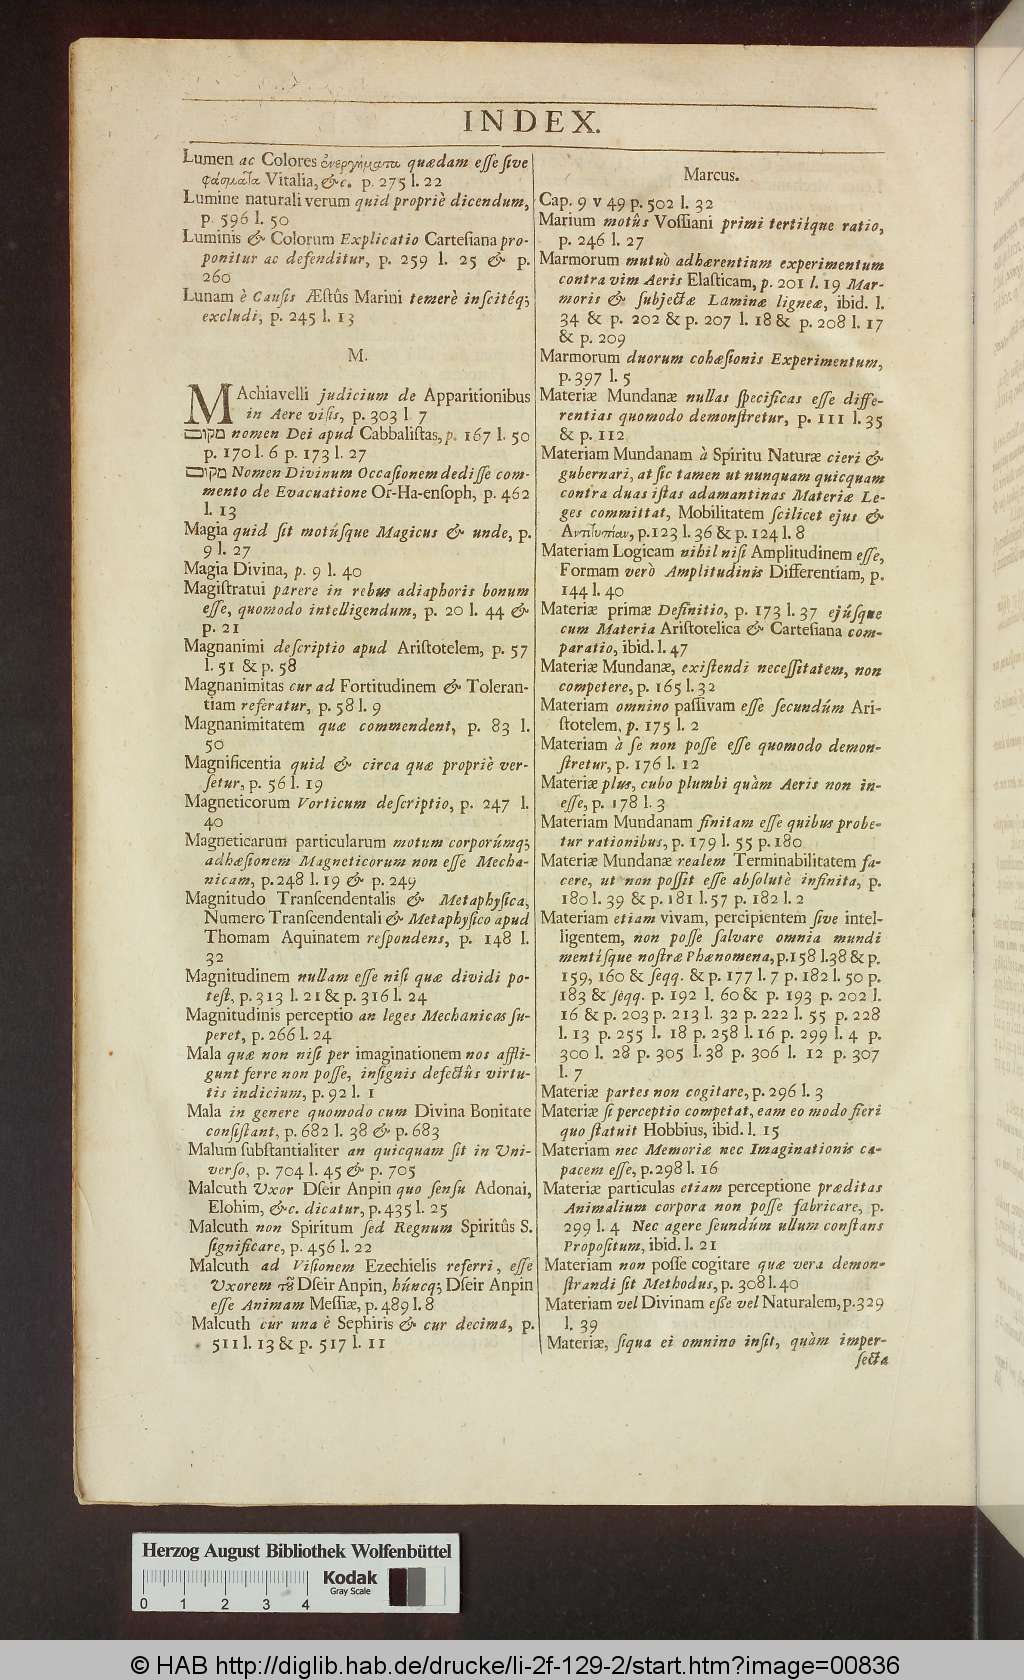 INDEX.
Lumen ac Colores ἐνεργήματα quædam eſſe ſive
φάσματα Vitalia, &c. p. 275 l. 22
Lumine naturali verum quid propriè dicendum,
p. 596 l. 50
Luminis & Colorum Explicatio Carteſiana pro-
ponitur ac defenditur, p. 259 l. 25 & p.
260
Lunam è Cauſis Æſtûs Marini temerè inſcitéq;
excludi, p. 245 l. 13
M.
MAchiavelli judicium de Apparitionibus
in Aere viſis, p. 303 l 7
מקום nomen Dei apud Cabbaliſtas, p. 167 l. 50
p. 170 l. 6 p. 173 l. 27
מקום Nomen Divinum Occaſionem dediſſe com-
mento de Evacuatione Or-Ha-enſoph, p. 462
l. 13
Magia quid ſit motúſque Magicus & unde, p.
9 l. 27
Magia Divina, p. 9 l. 40
Magiſtratui parere in rebus adiaphoris bonum
eſſe, quomodo intelligendum, p. 20 l. 44 &
p. 21
Magnanimi deſcriptio apud Ariſtotelem, p. 57
l. 51 & p. 58
Magnanimitas cur ad Fortitudinem & Toleran-
tiam referatur, p. 58 l. 9
Magnanimitatem quæ commendent, p. 83 l.
50
Magnificentia quid & circa quæ propriè ver-
ſetur, p. 56 l. 19
Magneticorum Vorticum deſcriptio, p. 247 l.
40
Magneticarum particularum motum corporúmq;
adhæſionem Magneticorum non eſſe Mecha-
nicam, p. 248 l. 19 & p. 249
Magnitudo Tranſcendentalis & Metaphyſica,
Numero Tranſcendentali & Metaphyſico apud
Thomam Aquinatem reſpondens, p. 148 l.
32
Magnitudinem nullam eſſe niſi quæ dividi po-
teſt, p. 313 l. 21 & p. 316 l. 24
Magnitudinis perceptio an leges Mechanicas ſu-
peret, p. 266 l. 24
Mala quæ non niſi per imaginationem nos affli-
gunt ferre non poſſe, inſignis defectûs virtu-
tis indicium, p. 92 l. 1
Mala in genere quomodo cum Divina Bonitate
conſiſtant, p. 682 l. 38 & p. 683
Malum ſubſtantialiter an quicquam ſit in Uni-
verſo, p. 704 l. 45 & p. 705
Malcuth Uxor Dſeir Anpin quo ſenſu Adonai,
Elohim, &c. dicatur, p. 435 l. 25
Malcuth non Spiritum ſed Regnum Spiritûs S.
ſignificare, p. 456 l. 22
Malcuth ad Viſionem Ezechielis referri, eſſe
Uxorem τοῦ Dſeir Anpin, húncq; Dſeir Anpin
eſſe Animam Meſſiæ, p. 489 l. 8
Malcuth cur una è Sephiris & cur decima, p.
511 l. 13 & p. 517 l. 11
Marcus.
Cap. 9 v 49 p. 502 l. 32
Marium motûs Voſſiani primi tertiíque ratio,
p. 246 l. 27
Marmorum mutuò adhærentium experimentum
contra vim Aeris Elaſticam, p. 201 l. 19 Mar-
moris & ſubjectæ Laminæ ligneæ, ibid. l.
34 & p. 202 & p. 207 l. 18 & p. 208 l. 17
& p. 209
Marmorum duorum cohæſionis Experimentum,
p. 397 l. 5
Materiæ Mundanæ nullas ſpecificas eſſe diffe-
rentias quomodo demonſtretur, p. 111 l. 35
& p. 112
Materiam Mundanam à Spiritu Naturæ cieri &
gubernari, at ſic tamen ut nunquam quicquam
contra duas iſtas adamantinas Materiæ Le-
ges committat, Mobilitatem ſcilicet ejus &
Αντιτυπίαν, p. 123 l. 36 & p. 124 l. 8
Materiam Logicam nihil niſi Amplitudinem eſſe,
Formam verò Amplitudinis Differentiam, p.
144 l. 40
Materiæ primæ Definitio, p. 173 l. 37 ejúſque
cum Materia Ariſtotelica & Carteſiana com-
paratio, ibid. l. 47
Materiæ Mundanæ, exiſtendi neceſſitatem, non
competere, p. 165 l. 32
Materiam omnino paſſivam eſſe ſecundúm Ari-
ſtotelem, p. 175 l. 2
Materiam à ſe non poſſe eſſe quomodo demon-
ſtretur, p. 176 l. 12
Materiæ plus, cubo plumbi quàm Aeris non in-
eſſe, p. 178 l. 3
Materiam Mundanam finitam eſſe quibus probe-
tur rationibus, p. 179 l. 55 p. 180
Materiæ Mundanæ realem Terminabilitatem fa-
cere, ut non poſſit eſſe abſolutè infinita, p.
180 l. 39 & p. 181 l. 57 p. 182 l. 2
Materiam etiam vivam, percipientem ſive intel-
ligentem, non poſſe ſalvare omnia mundi
mentíſque noſtræ Phænomena, p. 158 l. 38 & p.
159, 160 & ſeqq. & p. 177 l. 7 p. 182 l. 50 p.
183 & ſeqq. p. 192 l. 60 & p. 193 p. 202 l.
16 & p. 203 p. 213 l. 32 p. 222 l. 55 p. 228
l. 13 p. 255 l. 18 p. 258 l. 16 p. 299 l. 4 p.
300 l. 28 p. 305 l. 38 p. 306 l. 12 p. 307
l. 7
Materiæ partes non cogitare, p. 296 l. 3
Materiæ ſi perceptio competat, eam eo modo fieri
quo ſtatuit Hobbius, ibid. l. 15
Materiam nec Memoriæ nec Imaginationis ca-
pacem eſſe, p. 298 l. 16
Materiæ particulas etiam perceptione præditas
Animalium corpora non poſſe fabricare, p.
299 l. 4 Nec agere ſeundúm ullum conſtans
Propoſitum, ibid. l. 21
Materiam non poſſe cogitare quæ vera demon-
ſtrandi ſit Methodus, p. 308 l. 40
Materiam vel Divinam eſſe vel Naturalem, p. 329
l. 39
Materiæ, ſiqua ei omnino inſit, quàm imper-
ſecta
Herzog August Bibliothek Wolfenbüttel
Kodak
Gray Scale
0 1 2 3 4
© HAB http://diglib.hab.de/drucke/li-2f-129-2/start.htm?image=00836